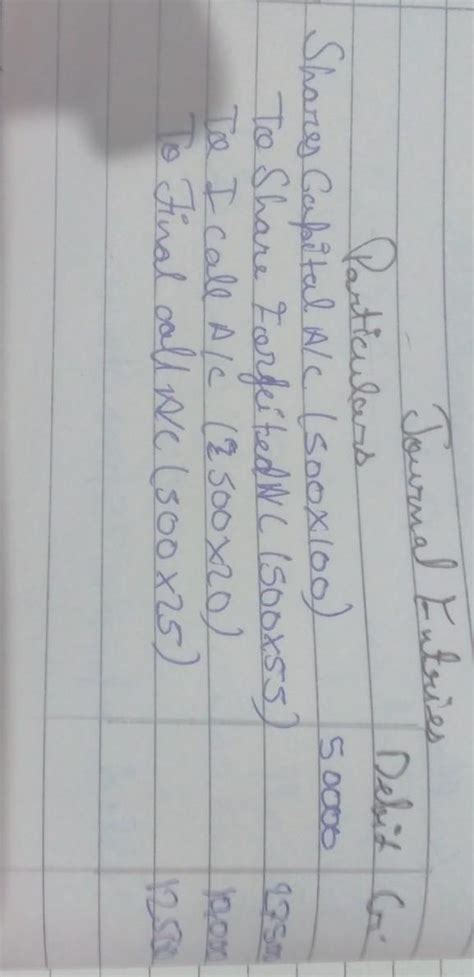 Journal Entries
Particulars Debit Cr
Shares Capital A/c (500x100) 50000
To Share Forfeited A/c (500x55) 27500
To I call A/c (500x20) 10,000
To Final call A/c (500x25) 12,500